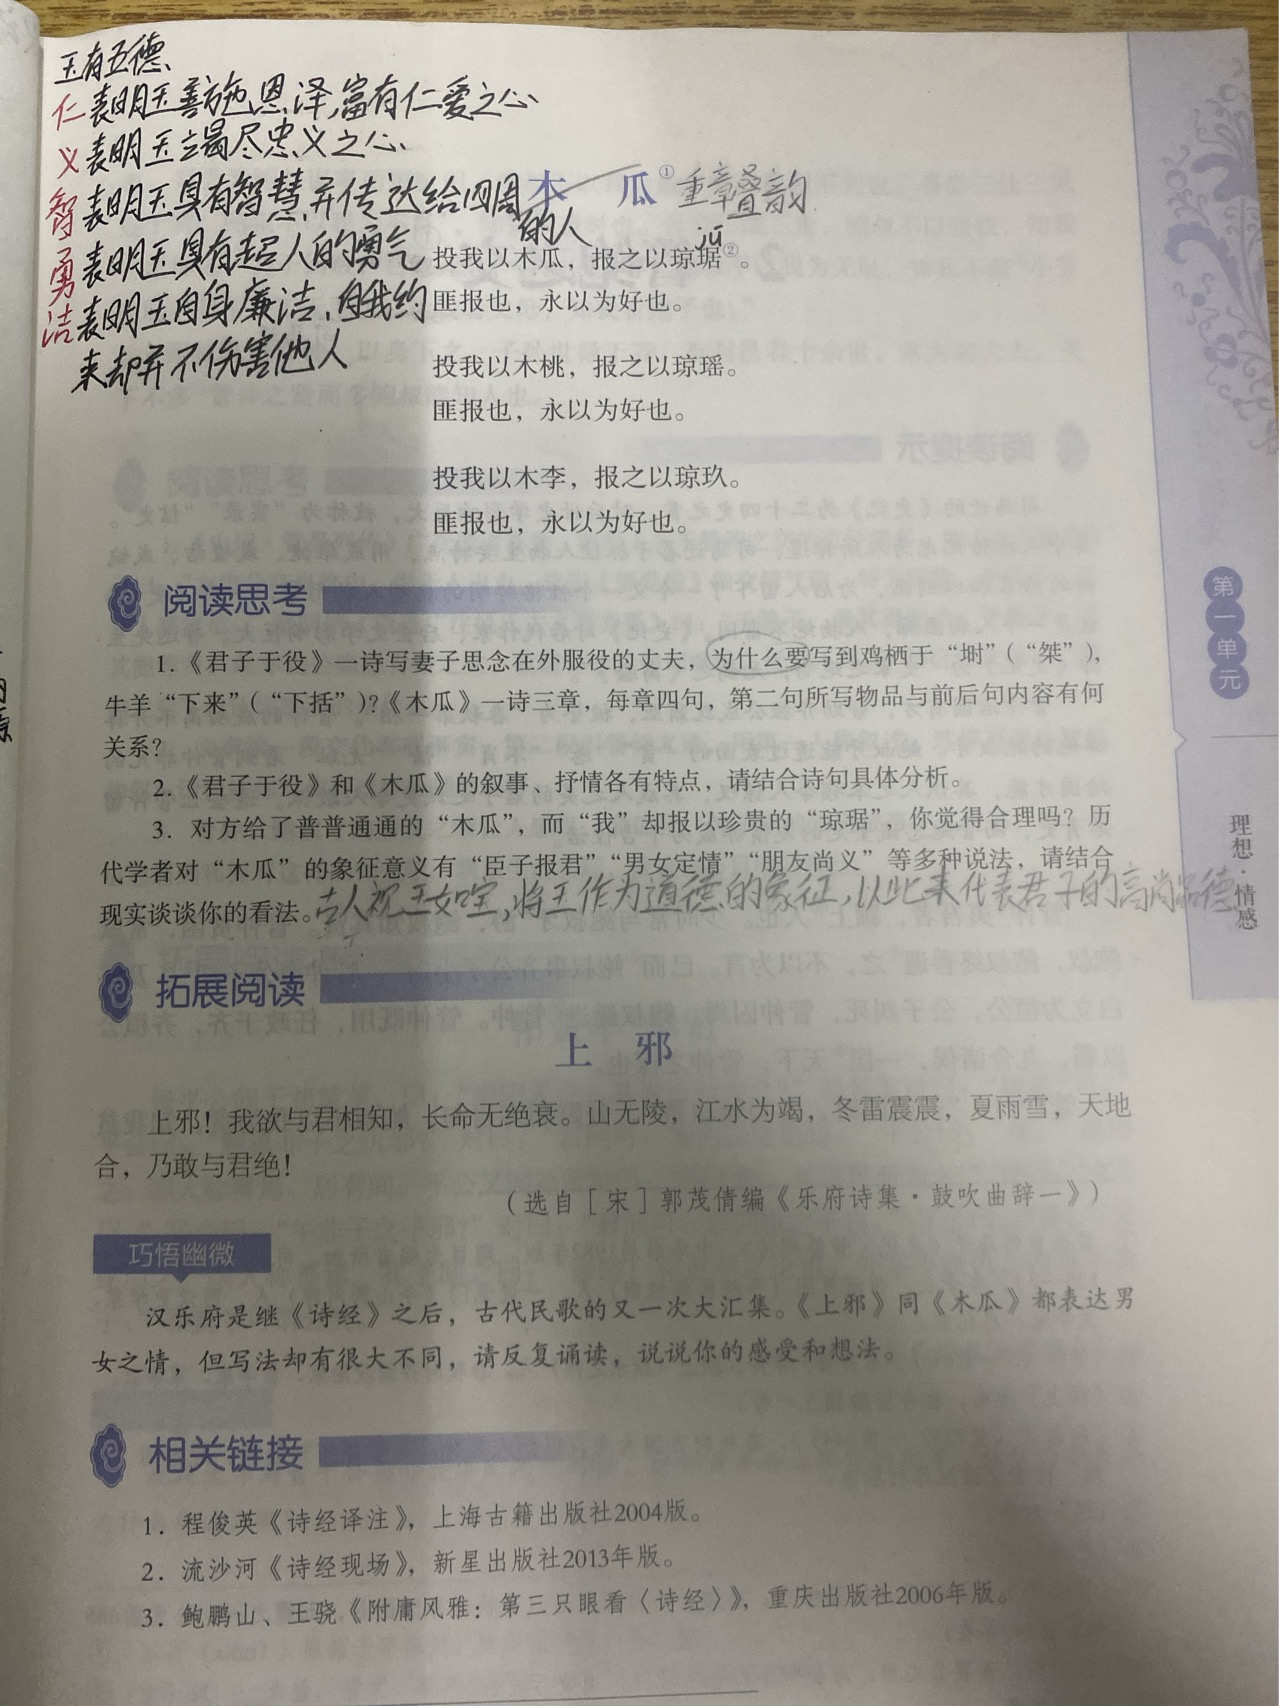 玉有五德
仁 表明玉善施恩泽,富有仁爱之心
义 表明玉竭尽忠义之心
智 表明玉具有智慧并传达给四周
的人
勇 表明玉具有超人的勇气
洁 表明玉自身廉洁、自我约
束却并不伤害他人
木 瓜① 重章叠韵
jū
投我以木瓜，报之以琼琚②。
匪报也，永以为好也。
投我以木桃，报之以琼瑶。
匪报也，永以为好也。
投我以木李，报之以琼玖。
匪报也，永以为好也。
阅读思考
1.《君子于役》一诗写妻子思念在外服役的丈夫，为什么要写到鸡栖于“埘”（“桀”），
牛羊“下来”（“下括”）?《木瓜》一诗三章，每章四句，第二句所写物品与前后句内容有何
关系?
2.《君子于役》和《木瓜》的叙事、抒情各有特点，请结合诗句具体分析。
3. 对方给了普普通通的“木瓜”，而“我”却报以珍贵的“琼琚”，你觉得合理吗？历
代学者对“木瓜”的象征意义有“臣子报君”“男女定情”“朋友尚义”等多种说法，请结合
现实谈谈你的看法。古人视玉如宝,将玉作为道德的象征,以此来代表君子的高尚品德
拓展阅读
上 邪
上邪！我欲与君相知，长命无绝衰。山无陵，江水为竭，冬雷震震，夏雨雪，天地
合，乃敢与君绝！
（选自［宋］郭茂倩编《乐府诗集·鼓吹曲辞一》）
巧悟幽微
汉乐府是继《诗经》之后，古代民歌的又一次大汇集。《上邪》同《木瓜》都表达男
女之情，但写法却有很大不同，请反复诵读，说说你的感受和想法。
相关链接
1. 程俊英《诗经译注》，上海古籍出版社2004版。
2. 流沙河《诗经现场》，新星出版社2013年版。
3. 鲍鹏山、王骁《附庸风雅：第三只眼看〈诗经〉》，重庆出版社2006年版。
第一单元
理想·情感